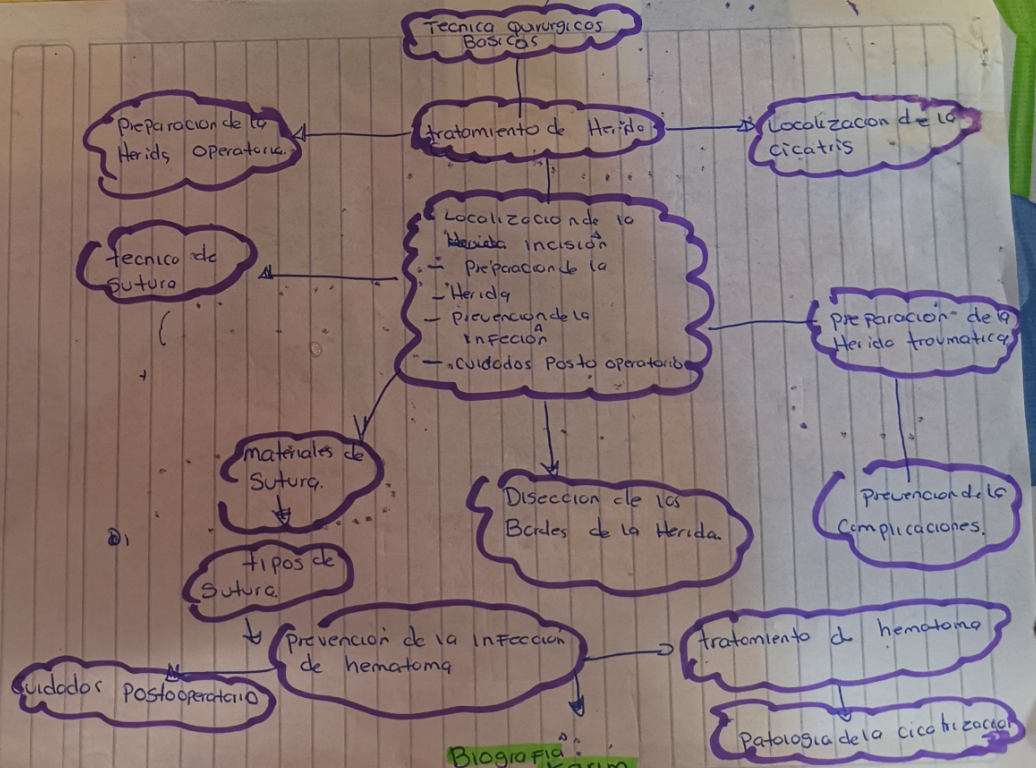 Tecnica Quirurgicos
Basicos
Preparacion de la
Herids operatoria.
tratamiento de Herida
Localizacion de la
cicatris
Localizacion de la
incisión
- Preparacion de la
- Herida
- prevencion de la
infeción
- cuidados Posto operatorio
tecnico de
Sutura
preparación de la
Herida traumatica
materiales de
Sutura.
Diseccion de los
Bordes de la Herida.
prevencion de la
Complicaciones.
tipos de
Sutura.
prevención de la infeccion
de hematoma
tratamiento d hematoma
cuidados postooperatorio
Patologia de la cicatrizacion
Biografia:
Karim